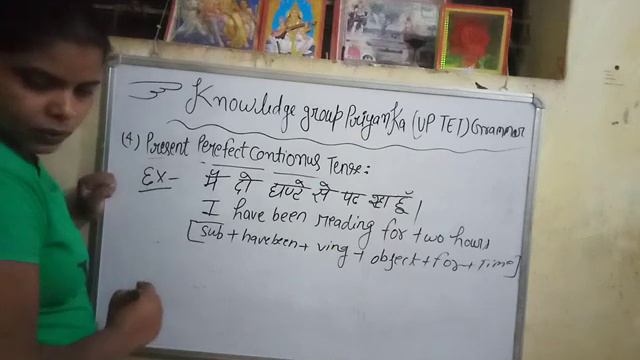 Knowledge group Priyanka (UP TET) Grammar
(4) Present Perefect Contionus Tense:
Ex- मैं दो घण्टे से पढ़ रहा हूँ।
I have been reading for two hours
[sub + havebeen + ving + object + for + Time]